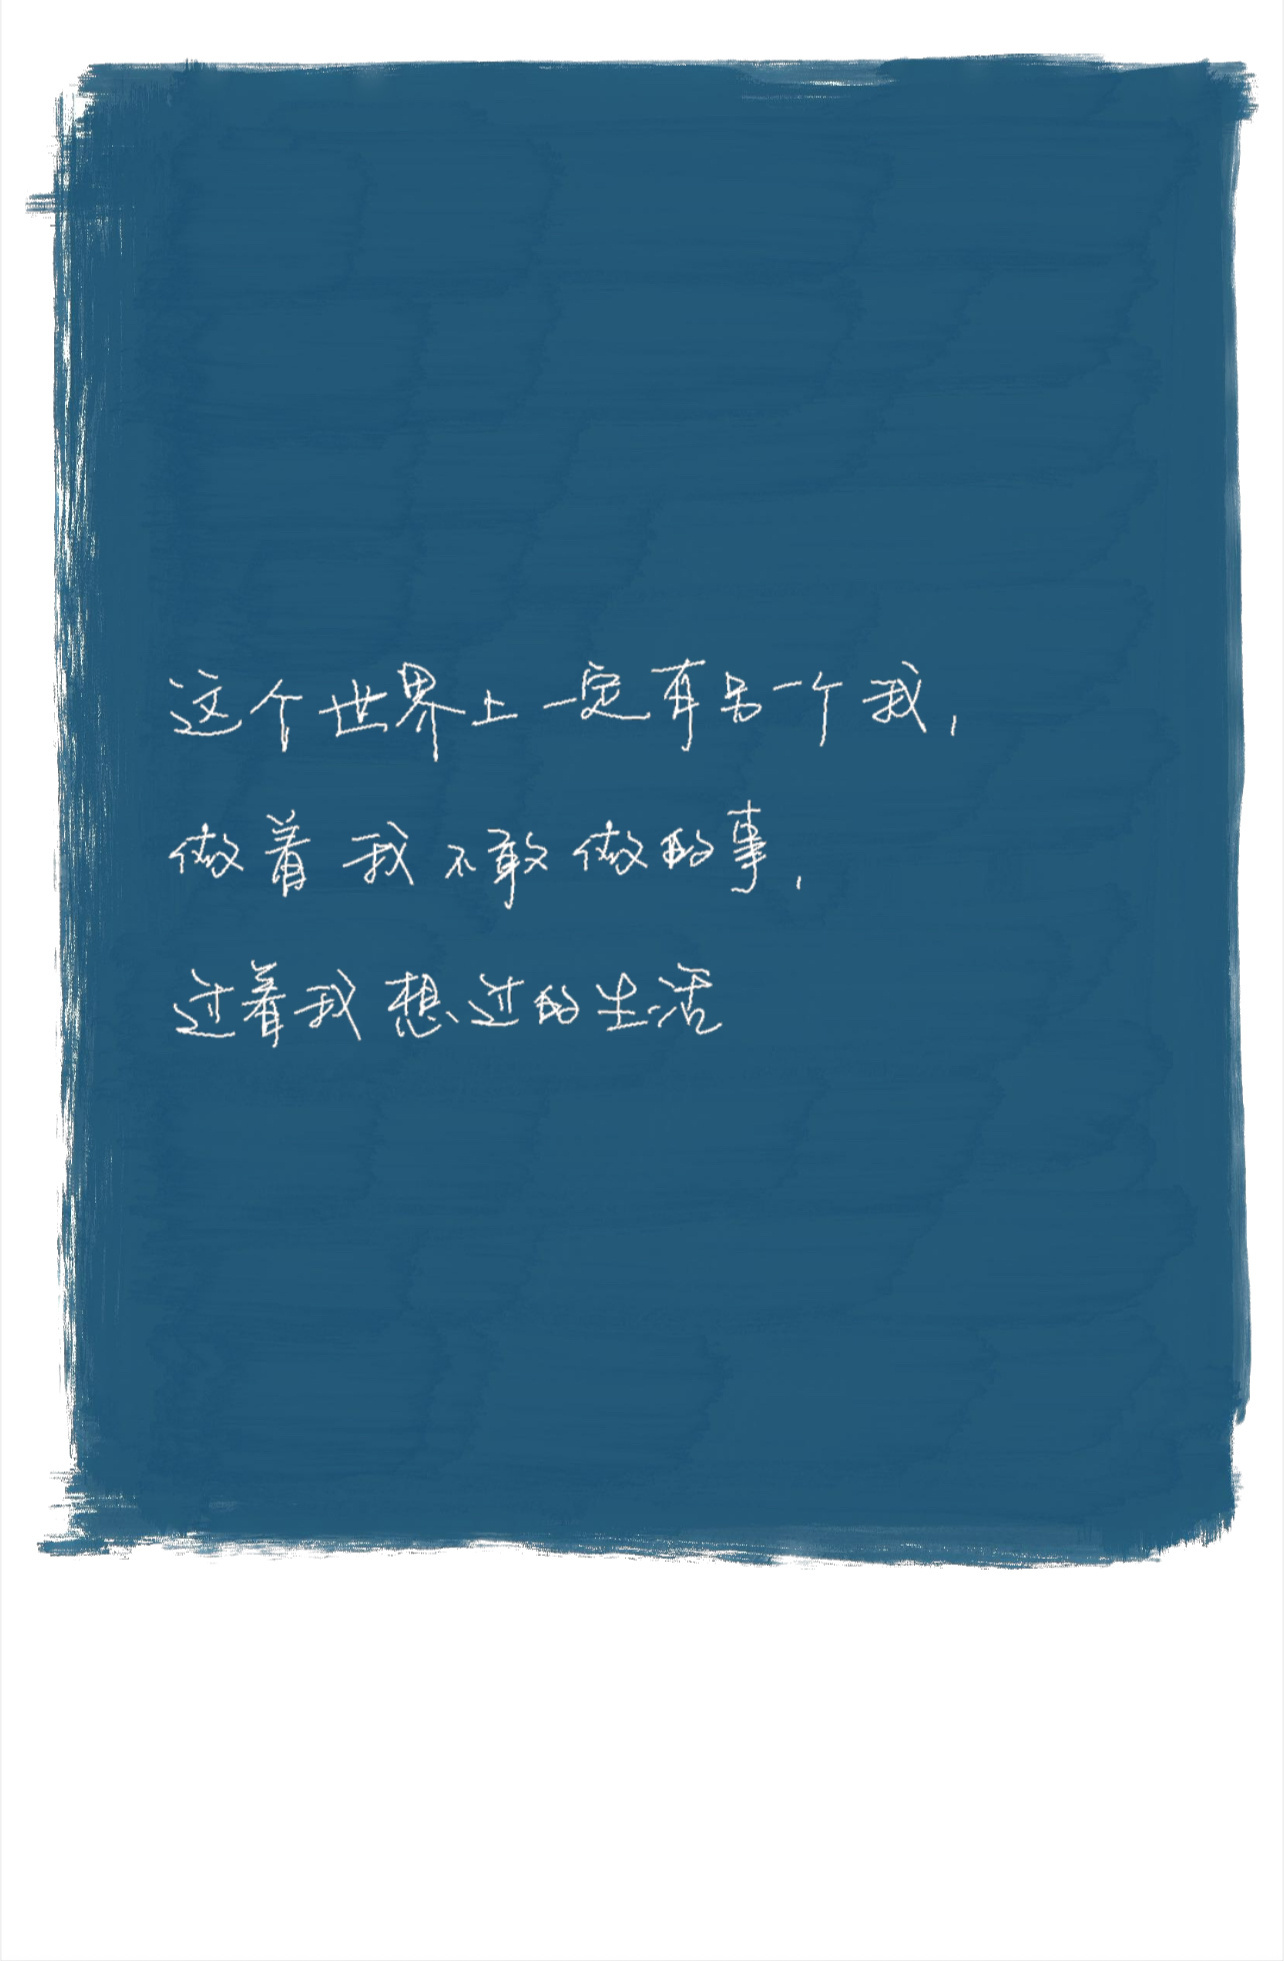 这个世界上一定有另一个我，
做着我不敢做的事，
过着我想过的生活